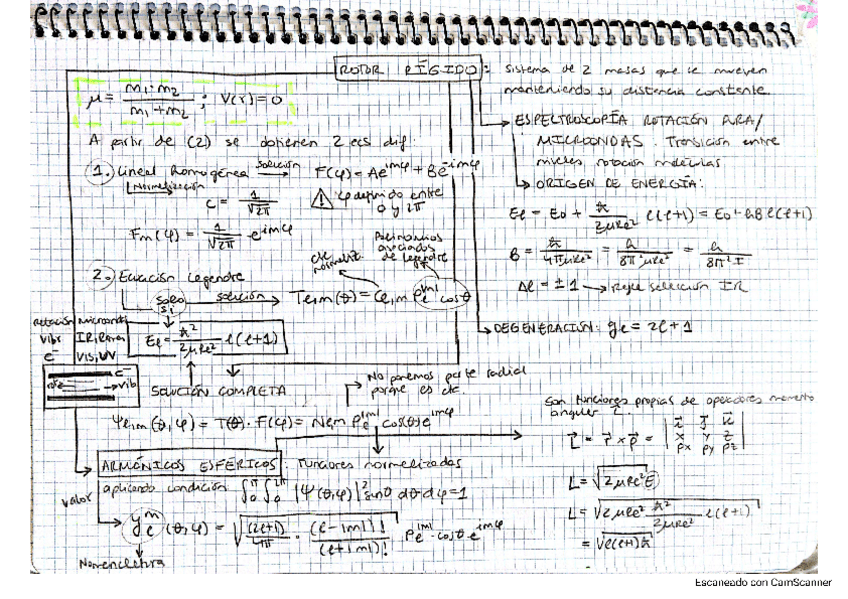 ROTOR RÍGIDO: Sistema de 2 masas que se mueven
manteniendo su distancia constante.
μ = m1·m2 / m1+m2 ; V(r)=0
A partir de (2) se obtienen 2 ecs dif:
1. Lineal homogénea → solución F(φ)=Ae^imφ + Be^-imφ
Normalización
C = 1/√2π
⚠ φ definido entre
0 y 2π
Fm(φ) = 1/√2π · e^imφ
Polinomios
asociados
de Legendre
cte
normaliz.
2. Ecuación Legendre
solo
si
solución → Te,m(θ) = Ce,m Pe^|m| cosθ
Ee = ħ²/2μRe² e(e+1)
rotación Microondas
vibr IR, Raman
e⁻ VIS, UV
e⁻
→vib
SOLUCIÓN COMPLETA
No ponemos parte radial
porque es cte.
Ψe,m(θ,φ) = T(θ)·F(φ) = Ne,m Pe^|m| cos(θ)e^imφ
ARMÓNICOS ESFÉRICOS: Funciones normalizadas
aplicando condición ∫0^π ∫0^2π |Ψ(θ,φ)|² sinθ dθ dφ = 1
valor
Ye^m (θ,φ) = √((2e+1)/4π · (e-|m|)!/(e+|m|)!) Pe^|m| · cosθ e^imφ
Nomenclatura
ESPECTROSCOPÍA ROTACIÓN PURA/
MICROONDAS. Transición entre
niveles rotación moléculas
ORIGEN DE ENERGÍA:
Ee = E0 + ħ/2μRe² e(e+1) = E0 + hB e(e+1)
B = ħ/4πμRe² = h/8π²μRe² = h/8π²I
Δe = ±1 → Regla selección IR
DEGENERACIÓN: ge = 2e+1
Son funciones propias de operadores momento
angular L.
L = r × p = | i j k
x y z
px py pz |
L = √2μRe²E
L = √2μRe² ħ²/2μRe² e(e+1)
= √e(e+1)ħ
Escaneado con CamScanner